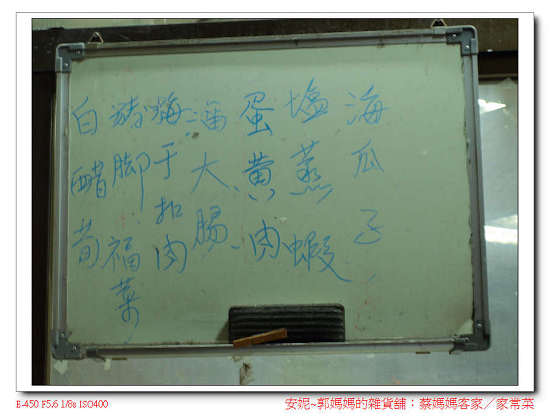 海瓜子
塩蒸蝦
蛋黃肉
大腸
梅干扣肉
豬脚福菜
白醋荀
E-450 F5.6 1/8s ISO400
安妮~郭媽媽的雜貨舖：蔡媽媽客家／家常菜